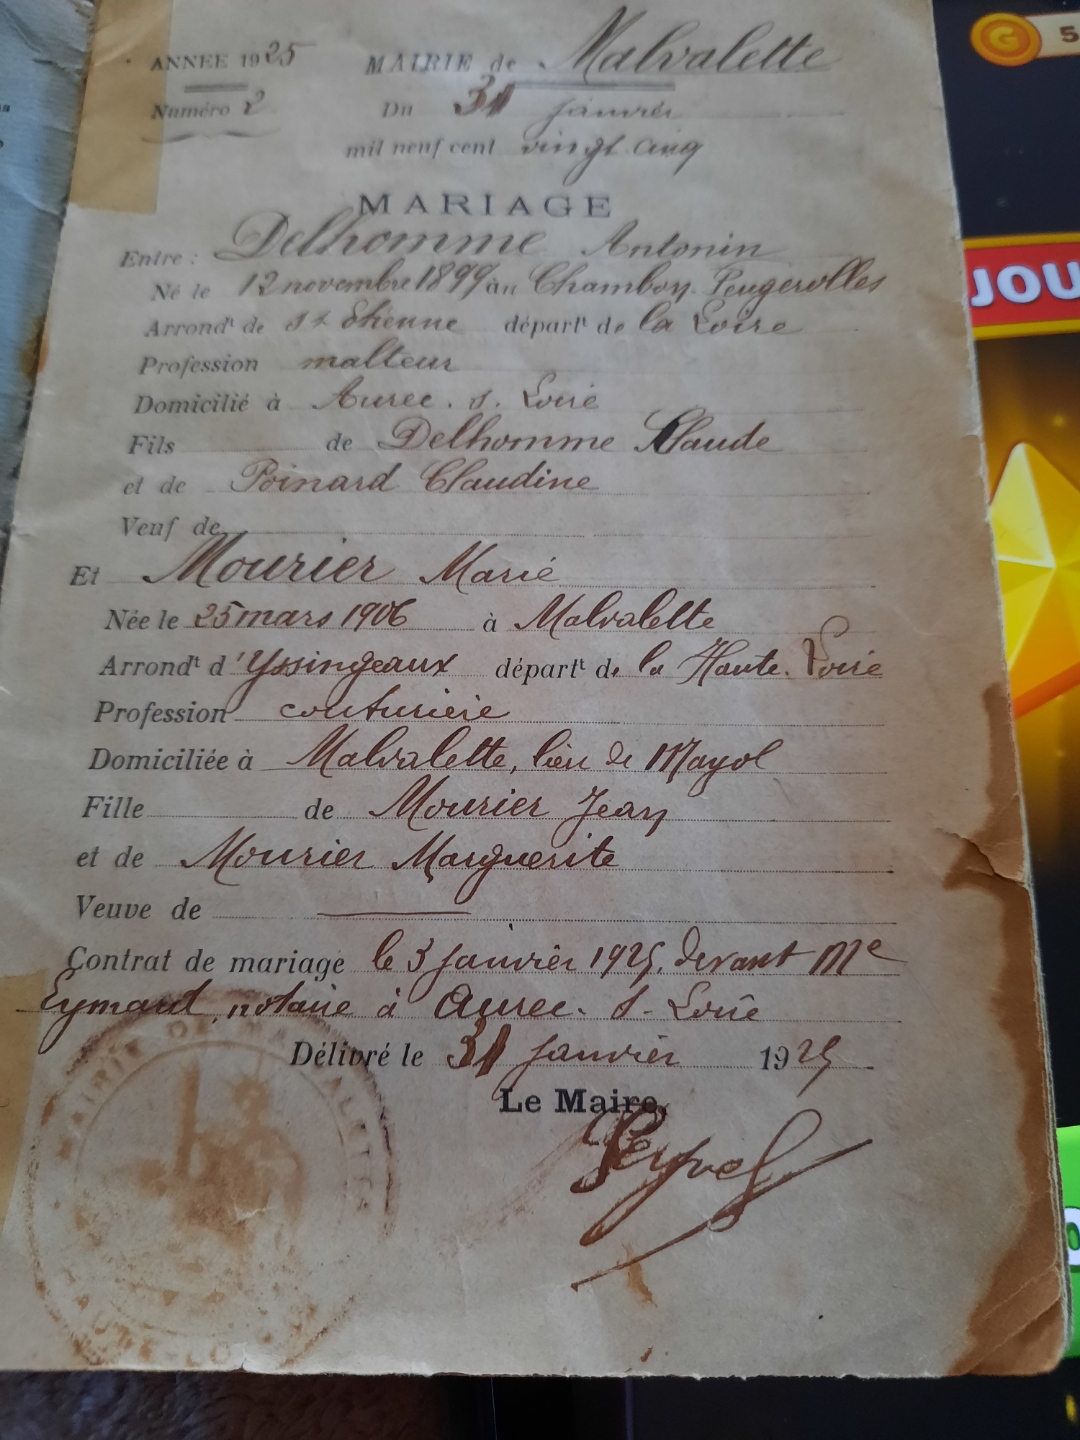 ANNÉE 1925
MAIRIE de Malvalette
Numéro 2
Du 31 janvier
mil neuf cent vingt cinq
MARIAGE
Entre : Delhomme Antonin
Né le 12 novembre 1899 au Chambon-Feugerolles
Arrondt de St Etienne départt de la Loire
Profession malteur
Domicilié à Aurec. s. Loire
Fils de Delhomme Claude
et de Poinard Claudine
Veuf de
Et Mourier Marie
Née le 25 mars 1906 à Malvalette
Arrondt d'Yssingeaux départt de la Haute-Loire
Profession couturière
Domiciliée à Malvalette, lieu de Mayol
Fille de Mourier Jean
et de Mourier Marguerite
Veuve de
Contrat de mariage le 3 janvier 1925, devant Me
Eymard, notaire à Aurec-s-Loire
Délivré le 31 janvier 1925
Le Maire,
MAIRIE DE MALVALETTE
HTE-LOIRE
JOU
5